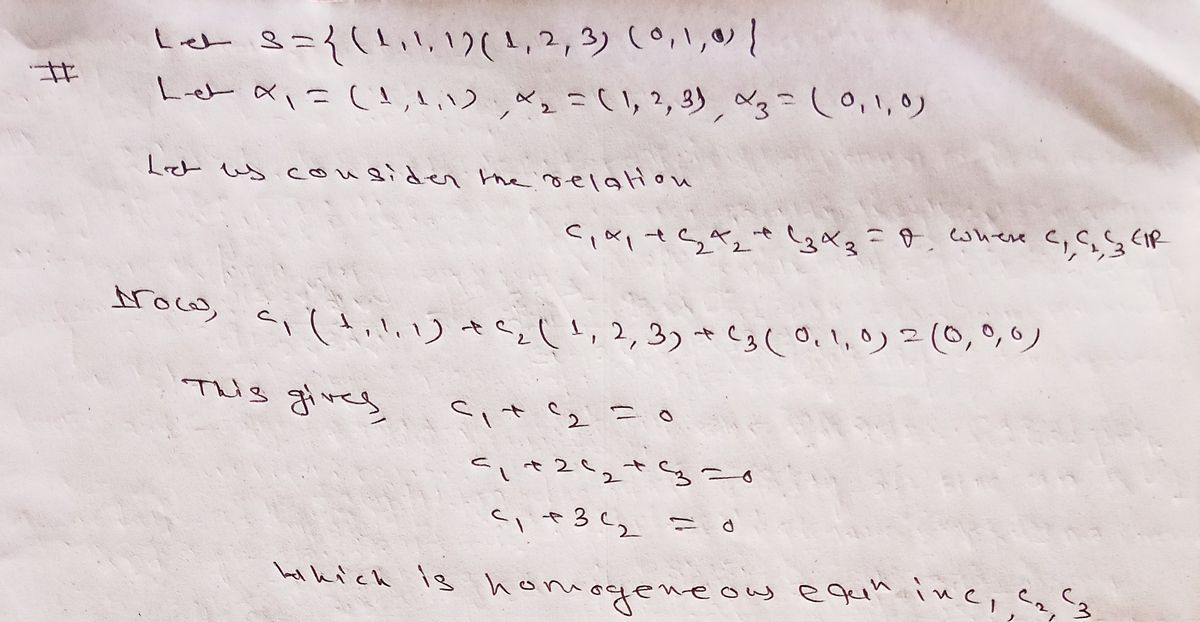 Let S={(1,1,1)(1,2,3) (0,1,0)}
# Let α₁ = (1,1,1), α₂ = (1,2,3), α₃ = (0,1,0)
Let us consider the relation
c₁α₁ + c₂α₂ + c₃α₃ = θ, where c₁,c₂,c₃ ∈ IR
Now, c₁(1,1,1) + c₂(1,2,3) + c₃(0,1,0) = (0,0,0)
This gives, c₁ + c₂ = 0
c₁ + 2c₂ + c₃ = 0
c₁ + 3c₂ = 0
which is homogeneous equⁿ in c₁, c₂, c₃